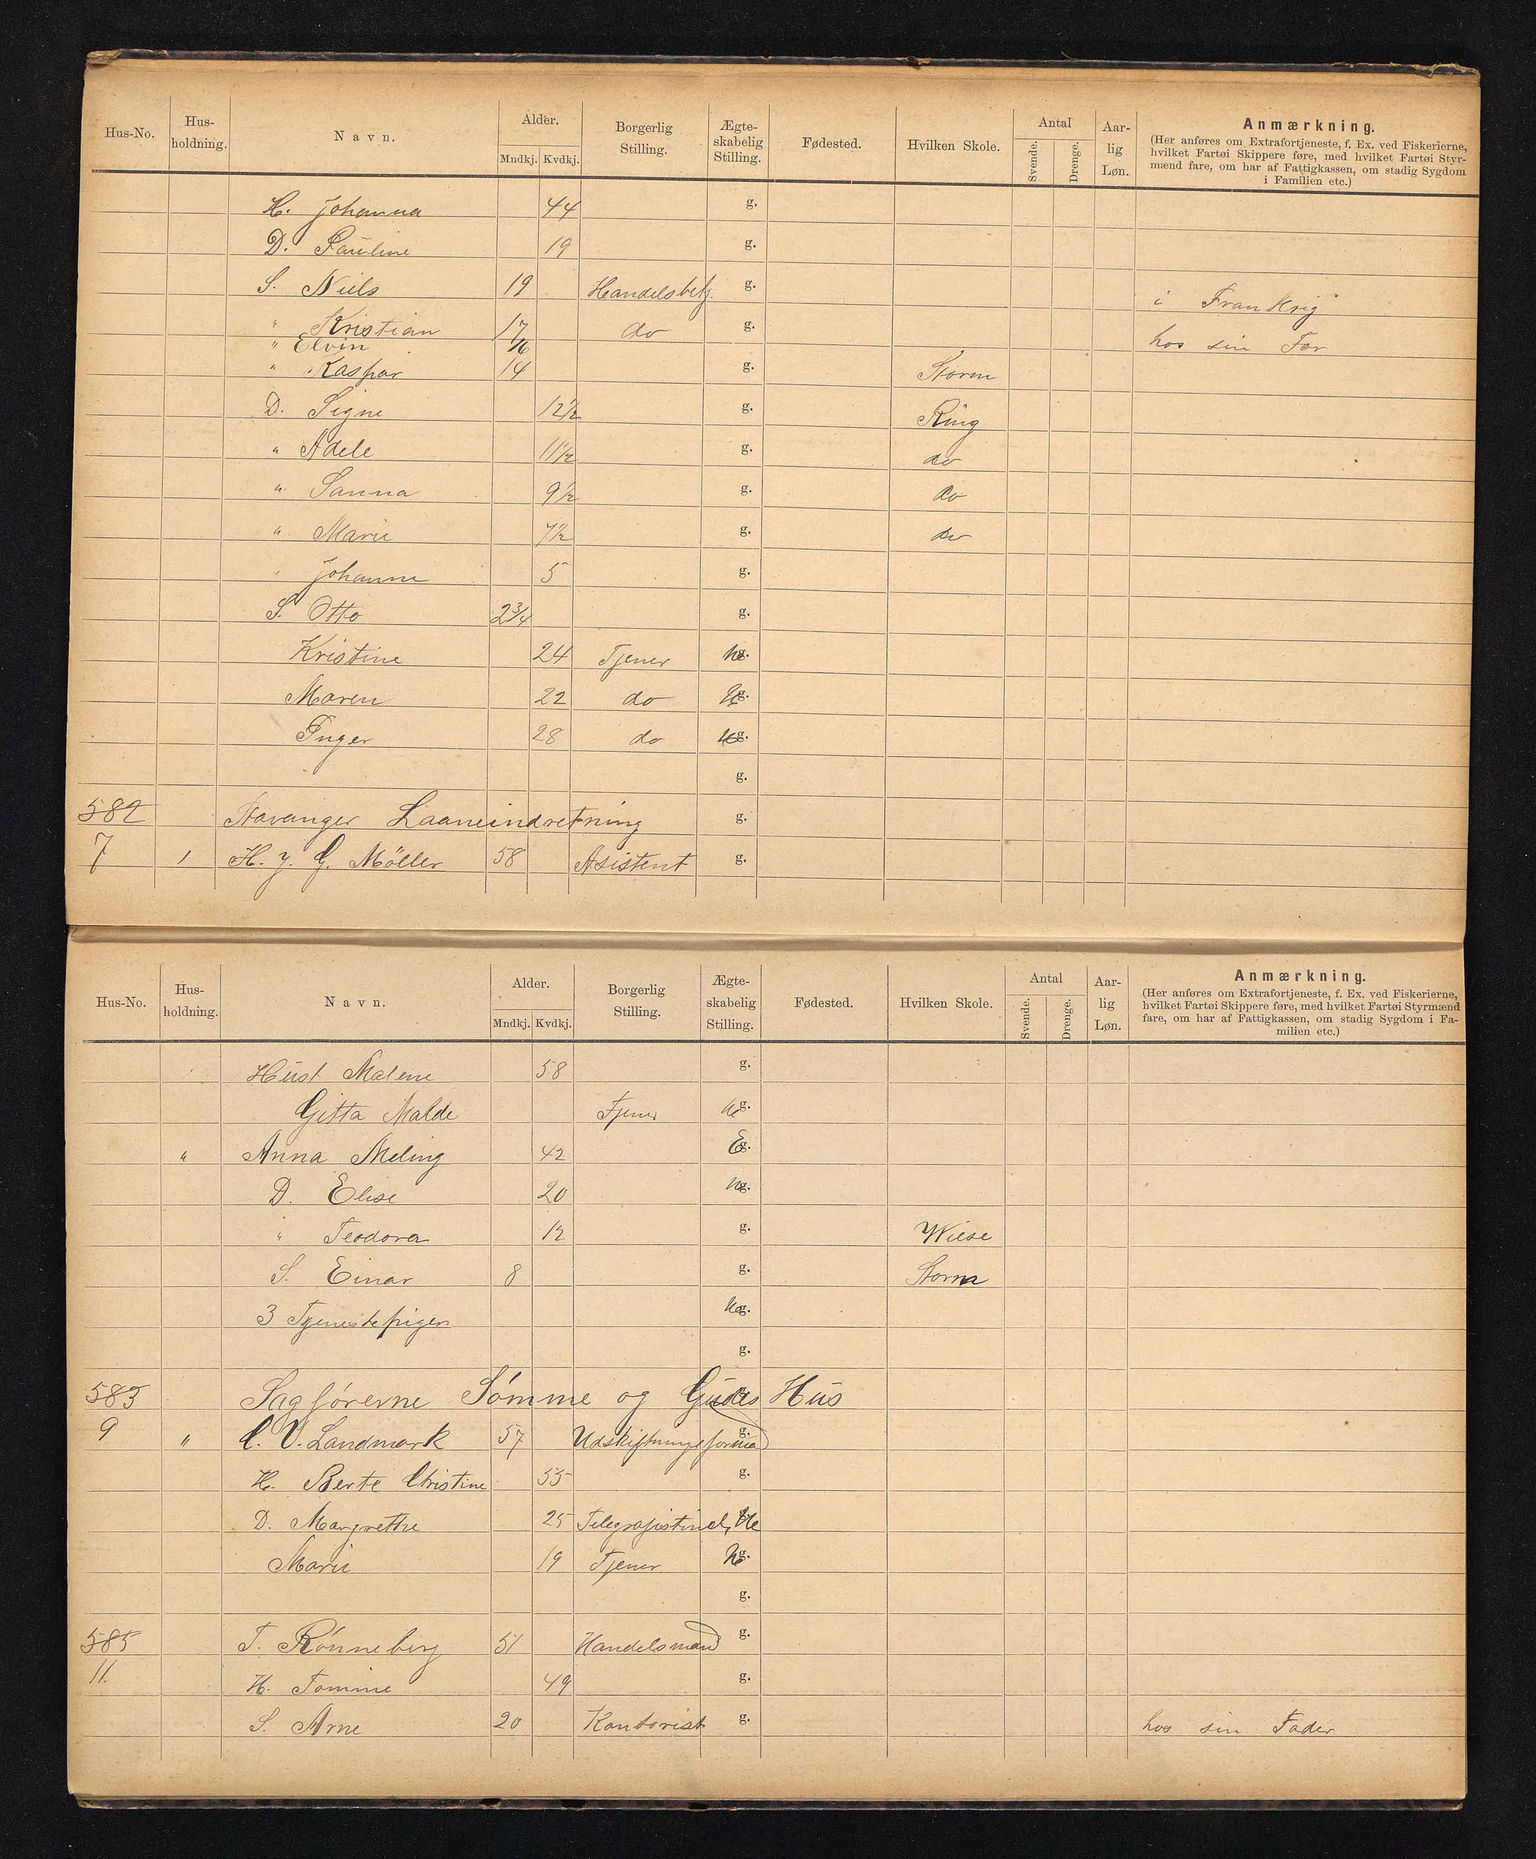 Hus-No. Hus-holdning. Navn. Alder. Mndkj. Kvdkj. Borgerlig Stilling. Ægte-skabelig Stilling. Fødested. Hvilken Skole. Antal Svende. Drenge. Aar-lig Løn. Anmærkning.
(Her anføres om Extrafortjeneste, f. Ex. ved Fiskerierne,
hvilket Fartøi Skippere føre, med hvilket Fartøi Styr-
mænd fare, om har af Fattigkassen, om stadig Sygdom
i Familien etc.)
H. Johanna 44 g.
D. Pauline 19 g.
S. Niels 19 Handelsbetj. g. i Frankrig
" Kristian 17 do g. hos sin Far
" Elvin 16
" Kaspar 14 g. Storm
D. Signe 12½ g. Ring
" Adele 11½ g. do
" Sanna 9½ g. do
" Marie 7½ g. do
" Johanne 5 g.
S. Otto 2¾ g.
Kristine 24 Tjener g.
Maren 22 do g.
Inger 28 do g.
g.
582 Stavanger Laaneindretning g.
7 1 H. J. G. Møller 58 Asistent g.
Hus-No. Hus-holdning. Navn. Alder. Mndkj. Kvdkj. Borgerlig Stilling. Ægte-skabelig Stilling. Fødested. Hvilken Skole. Antal Svende. Drenge. Aar-lig Løn. Anmærkning.
(Her anføres om Extrafortjeneste, f. Ex. ved Fiskerierne,
hvilket Fartøi Skippere føre, med hvilket Fartøi Styrmænd
fare, om har af Fattigkassen, om stadig Sygdom i Fa-
milien etc.)
Hust Malene 58 g.
Gitta Malde Tjener Ug.
" Anna Meling 42 E g.
D. Elise 20 Ug.
" Teodora 12 g. Wiese
S. Einar 8 g. Storm
3 Tjenestepiger Ug.
g.
583 Sagførerne Sømme og Gudes Hus
9 " C. V. Landmark 57 Udskiftningsformand g.
H. Berte Christine 55 g.
D. Margrethe 25 Telegrafistind, Ue
Marie 19 Tjener g.
g.
585 T. Rønneberg 51 Handelsmand g.
11. H. Tomine 49 g.
S. Arne 20 Kontorist g. hos sin Fader